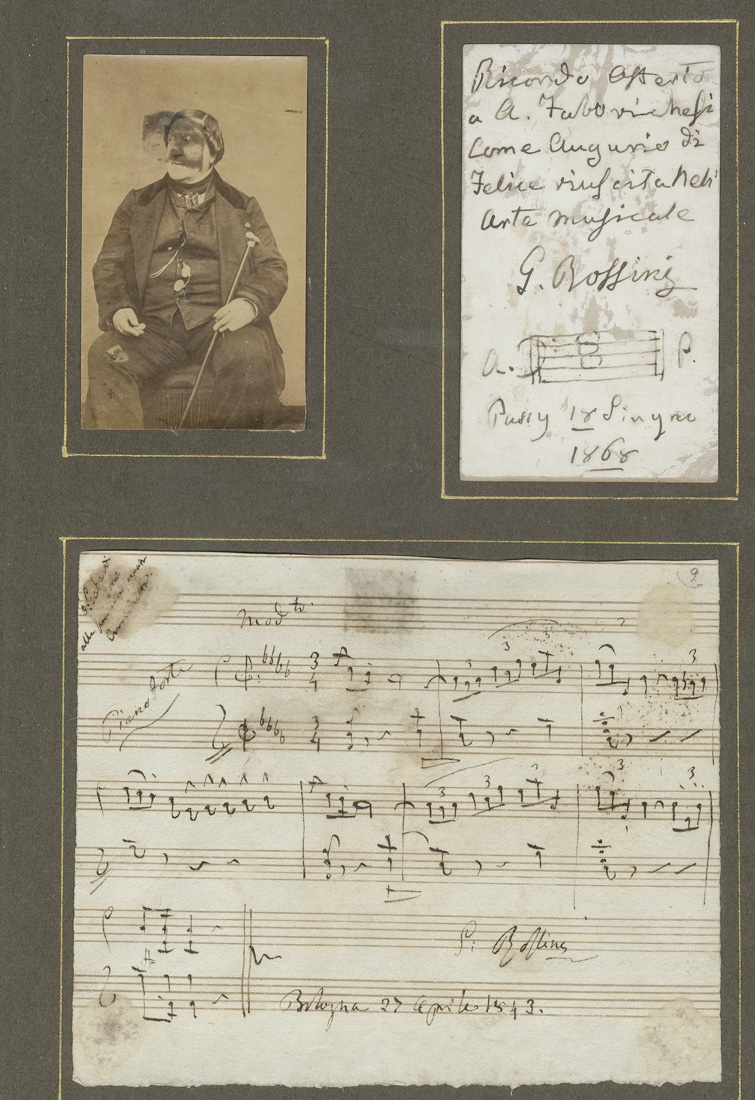 Ricordo offerto
a A.
Come Augurio di
Felice riuscita nell'
Arte musicale
G. Rossini
A. P.
Passy 18 Giugno
1868
9
Mod.to
Pianoforte
3
4
3
4
3 3 3 3 3
3 3 3 3 3
G. Rossini
Bologna 27 Aprile 1843.